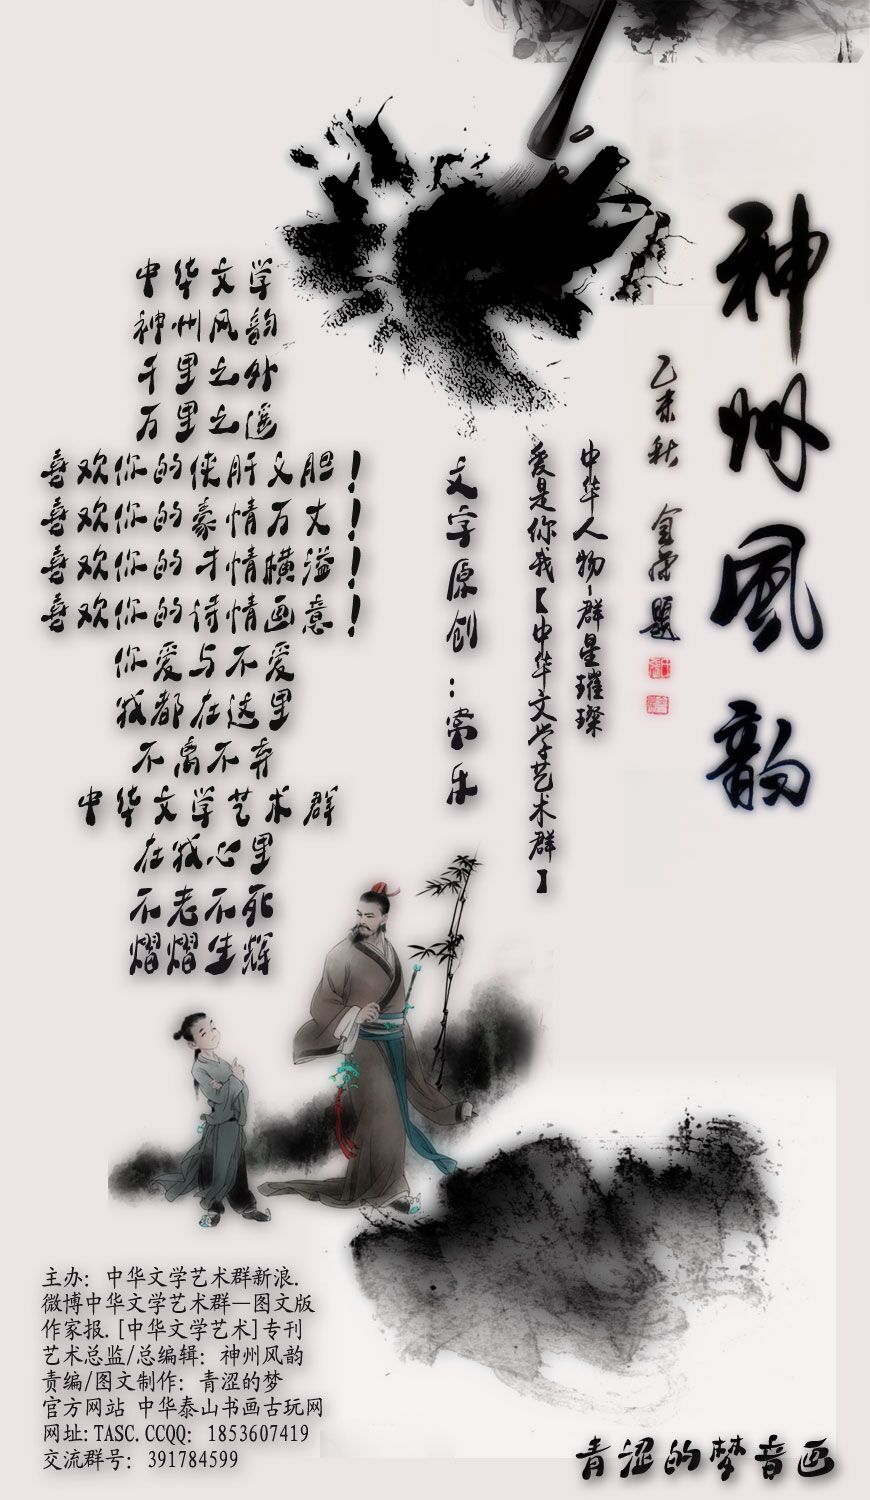 神州风韵
乙未秋 金 题
中华人物-群星璀璨
爱是你我【中华文学艺术群】
文字原创：常乐
中华文学
神州风韵
千里之外
万里之遥
喜欢你的侠肝义胆！
喜欢你的豪情万丈！
喜欢你的才情横溢！
喜欢你的诗情画意！
你爱与不爱
我都在这里
不离不弃
中华文学艺术群
在我心里
不老不死
熠熠生辉
主办：中华文学艺术群新浪.
微博中华文学艺术群—图文版
作家报.[中华文学艺术]专刊
艺术总监/总编辑：神州风韵
责编/图文制作：青涩的梦
官方网站 中华泰山书画古玩网
网址:TASC.CCQQ：1853607419
交流群号：391784599
青涩的梦音画